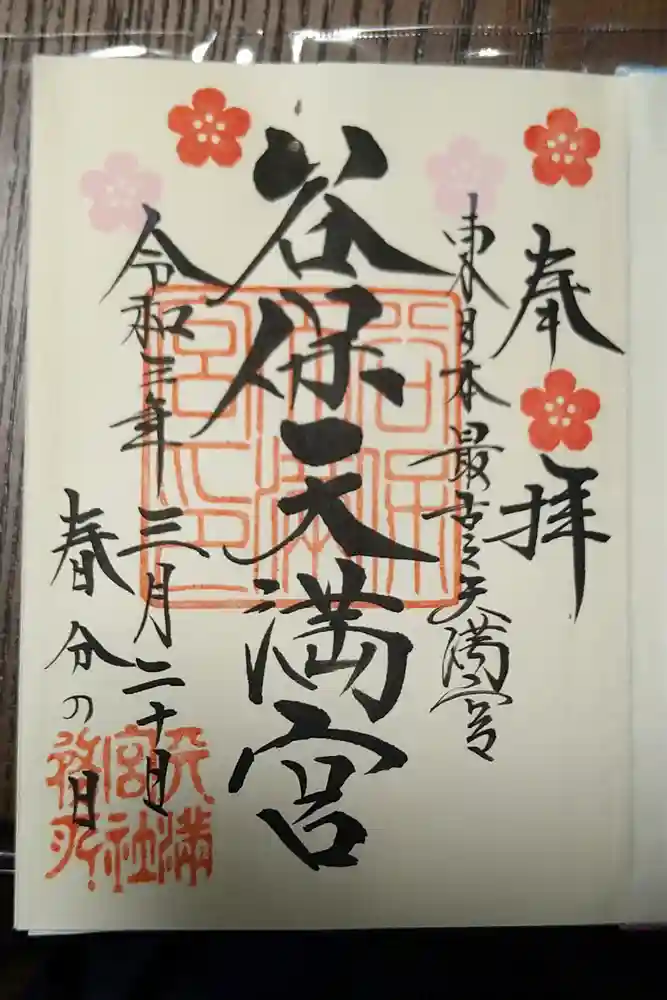 奉拝
東日本最古之天満宮
谷保天満宮
令和三年三月二十日
春分の日
天満宮社務所